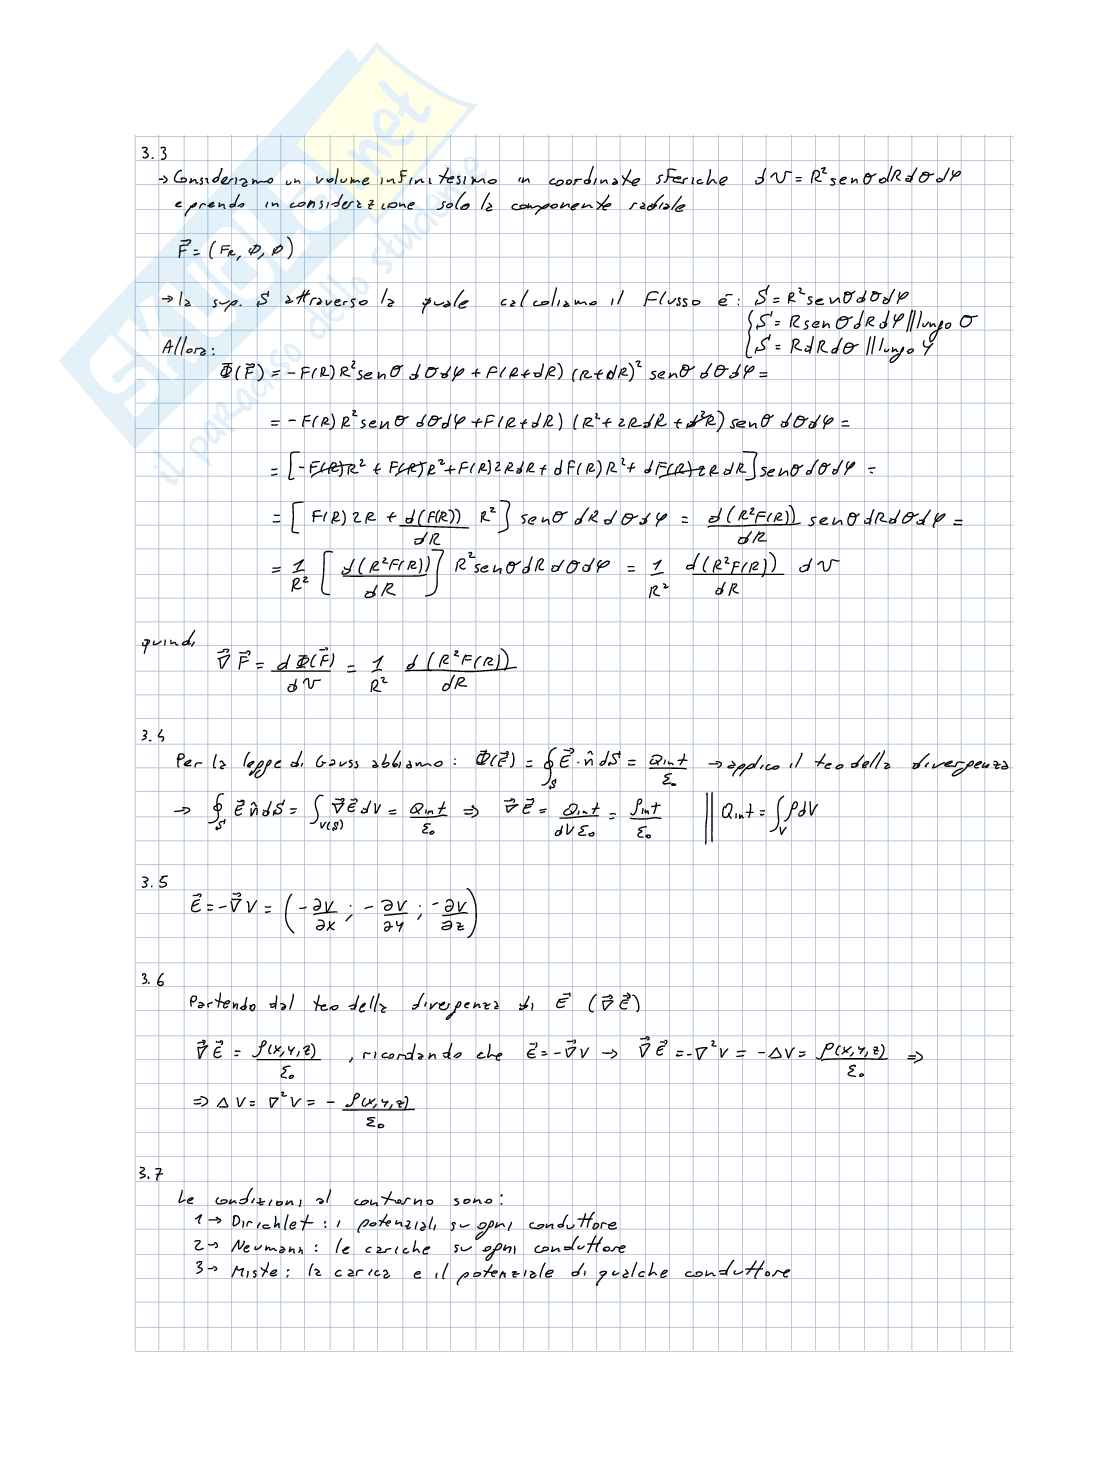 SKUOLA.net
il paradiso dello studente
3.3
→ Consideriamo un volume infinitesimo in coordinate sferiche dV = R² senθ dR dθ dφ
e prendo in considerazione solo la componente radiale
F⃗ = (F_R, Ø, Ø)
→ la sup. S attraverso la quale calcoliamo il Flusso è: S = R² senθ dθ dφ
S = R senθ dR dφ || lungo θ
S = R dR dθ || lungo φ
Allora:
Φ(F⃗) = -F(R) R² senθ dθ dφ + F(R+dR) (R+dR)² senθ dθ dφ =
= -F(R) R² senθ dθ dφ + F(R+dR) (R² + 2R dR + d²R) senθ dθ dφ =
= [-F(R)R² + F(R)R² + F(R)2R dR + dF(R)R² + dF(R)2R dR] senθ dθ dφ =
= [F(R) 2R + d(F(R))/dR R²] senθ dR dθ dφ = d(R²F(R))/dR senθ dR dθ dφ =
= 1/R² [d(R²F(R))/dR] R² senθ dR dθ dφ = 1/R² d(R²F(R))/dR dV
quindi
∇⃗ F⃗ = dΦ(F⃗)/dV = 1/R² d(R²F(R))/dR
3.4
Per la legge di Gauss abbiamo: Φ(E⃗) = ∮_S E⃗ · n̂ dS = Qint/ε₀ → applico il teo della divergenza
→ ∮_S E⃗ n̂ dS = ∫_V(S) ∇⃗ E⃗ dV = Qint/ε₀ ⇒ ∇⃗ E⃗ = Qint/dV ε₀ = ρint/ε₀ || Qint = ∫_V ρ dV
3.5
E⃗ = -∇⃗ V = (-∂V/∂x ; -∂V/∂y ; -∂V/∂z)
3.6
Partendo dal teo della divergenza di E⃗ (∇⃗ E⃗)
∇⃗ E⃗ = ρ(x,y,z)/ε₀ , ricordando che E⃗ = -∇⃗ V → ∇⃗ E⃗ = -∇² V = -ΔV = ρ(x,y,z)/ε₀ ⇒
⇒ ΔV = ∇² V = - ρ(x,y,z)/ε₀
3.7
Le condizioni al contorno sono:
1 → Dirichlet: i potenziali su ogni conduttore
2 → Neumann: le cariche su ogni conduttore
3 → Miste: la carica e il potenziale di qualche conduttore